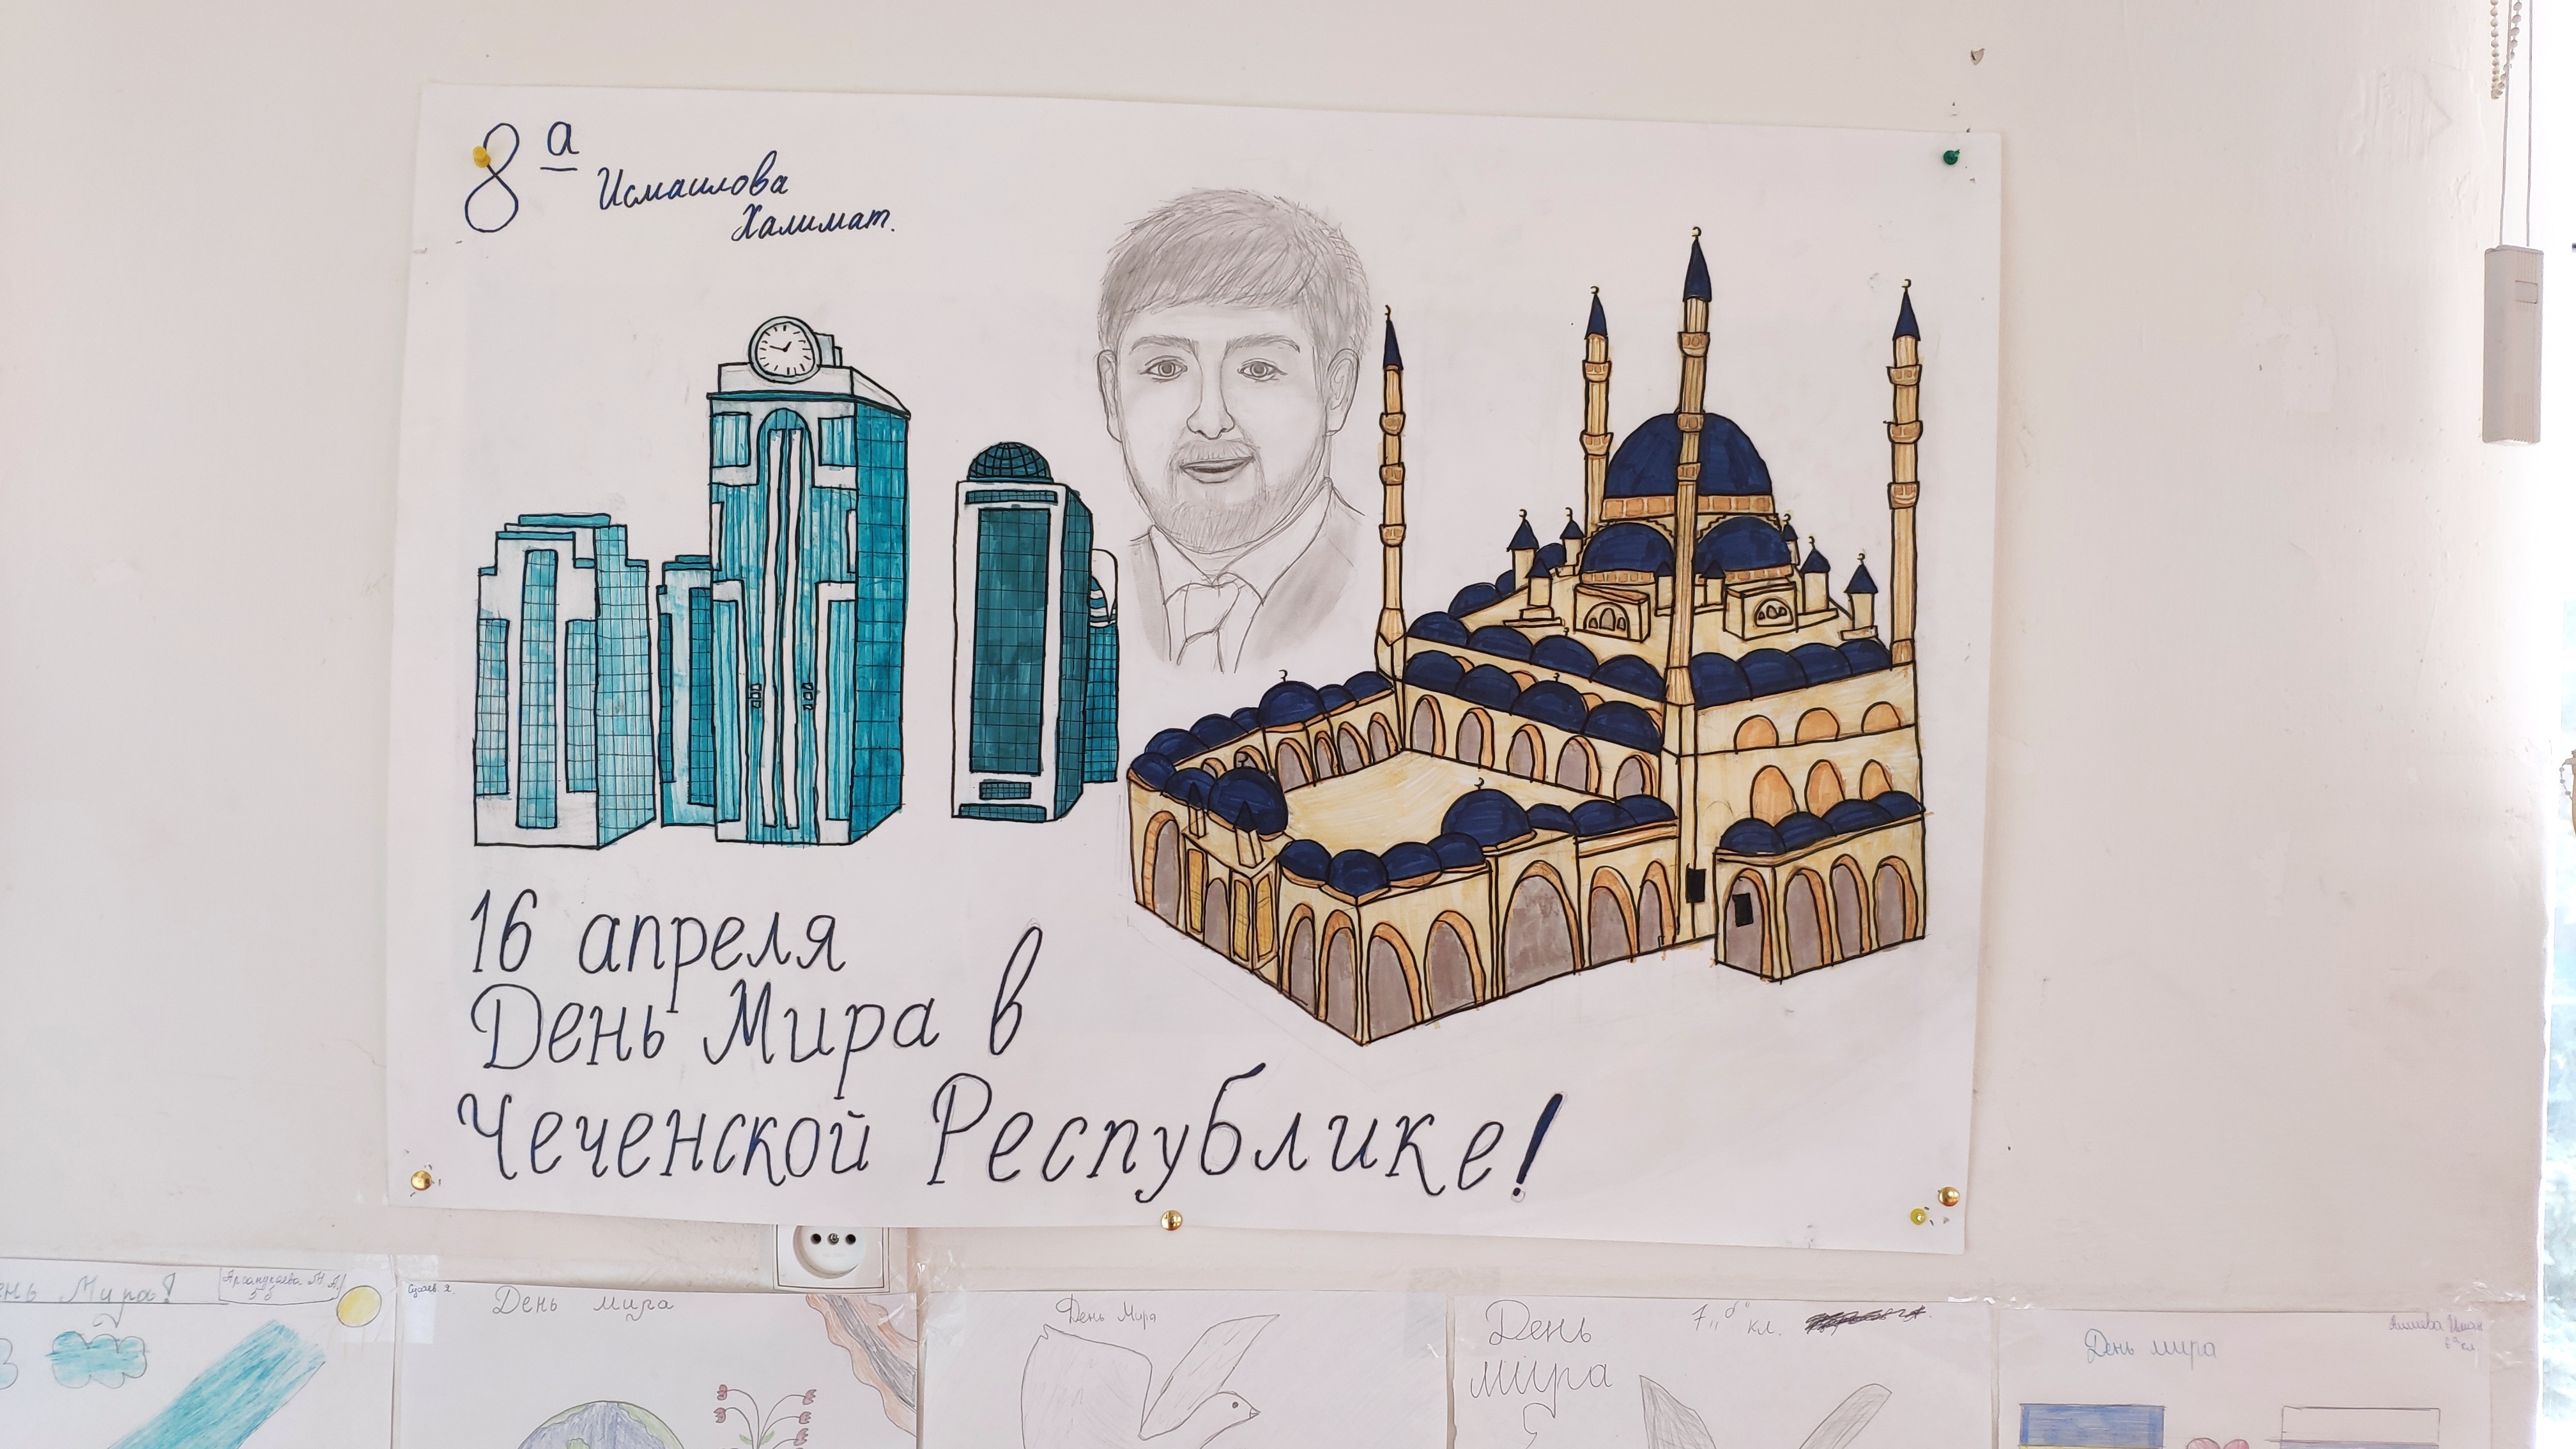 8 а
Исмаилова
Халимат.
16 апреля
День Мира в
Чеченской Республике!
День Мира!
5 б
День мира
День Мира
День
мира
7 „б" кл.
День мира